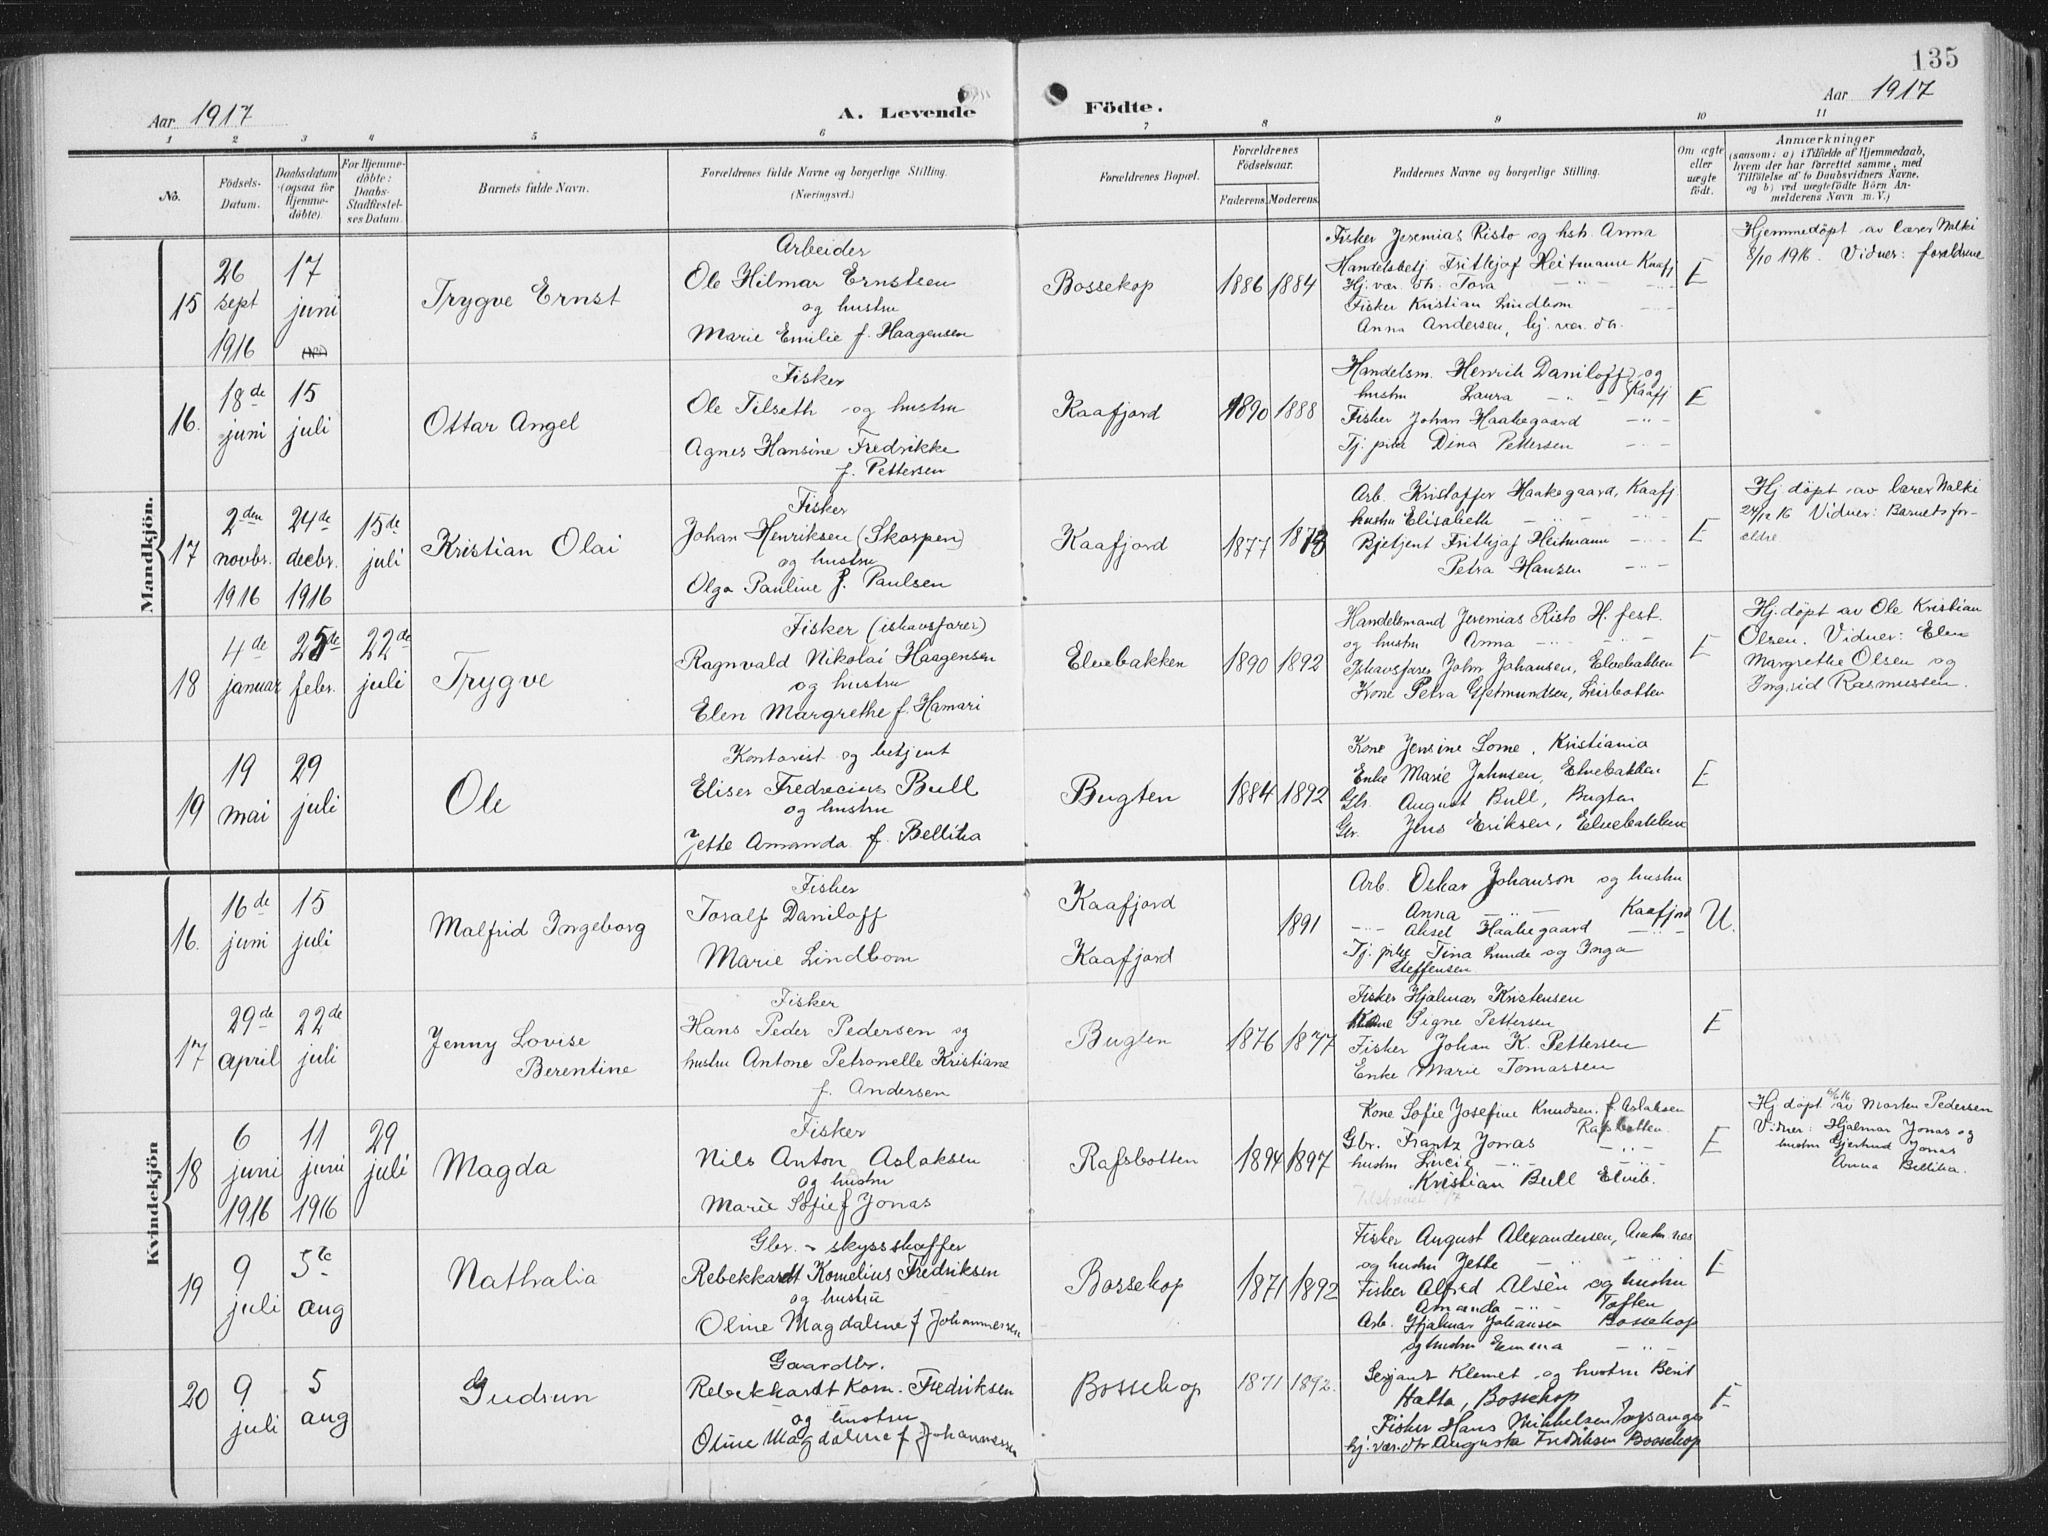 135
Aar 1917
A. Levende Födte.
Aar 1917
1 2 3 4 5 6 7 8 9 10 11
No.
Födsels-
Datum.
Daabsdatum
(ogsaa for
Hjemme-
döbte).
For Hjemme-
döbte:
Daabs-
Stadfæstel-
ses Datum.
Barnets fulde Navn.
Forældrenes fulde Navne og borgerlige Stilling.
(Næringsvei.)
Forældrenes Bopæl.
Forældrenes
Födselsaar.
Faderens. Moderens.
Faddernes Navne og borgerlige Stilling.
Om ægte
eller
uægte
födt.
Anmærkninger
(saasom: a) i Tilfælde af Hjemmedaab,
hvem der har forrettet samme, med
Tilföielse af to Daabsvidners Navne,
og b) ved uægtefödte Börn An-
melderens Navn m. V.)
Mandkjön.
15
26
sept
1916
17
juni
Trygve Ernst
Arbeider
Ole Hilmar Ernstsen
og hustru
Marie Emilie f. Haagensen
Bossekop
1886 1884
Fisker Jeremias Risto og hstr. Anna
Handelsbetj. Frithjof Heitmann Kaafj
Hj. vær. dtr. Tora
Fisker Kristian Lindbom
Anna Andersen, hj. vær. dtr.
E
Hjemmedöpt av lærer Nalki
8/10 1916. Vidner: forældrene
16.
18de
juni
15
juli
Ottar Angel
Fisker
Ole Tilseth og hustru
Agnes Hansine Fredrikke
f. Pettersen
Kaafjord
1890 1888
Handelsm. Henrik Daniloff og
hustru Laura Kaafj
Fisker Johan Haakegaard
Tj. pike Dina Pettersen
E
17
2den
novbr.
1916
24de
decbr.
1916
15de
juli
Kristian Olai
Fisker
Johan Henriksen (Skorpen)
og hustru
Olga Pauline f. Paulsen
Kaafjord
1877
Arb. Kristoffer Haakegaard, Kaafj.
hustru Elisabeth
Betjent Frithjof Heitmann
Petra Hansen
E
Hj. döpt av lærer Nalki
24/12 16 Vidner: Barnets for-
ældre.
18
4de
januar
25de
febr.
22de
juli
Trygve
Fisker (ishavsfarer)
Ragnvald Nikolai Haagensen
og hustru
Elen Margrethe f. Hamari
Elvebakken
1890 1892
Handelsmand Jeremias Risto H. fest.
og hustru Anna
Ishavsfarer John Johansen, Elvebakken
Kone Petra Gjetmundsen, Leirbotten
E
Hj. döpt av Ole Kristian
Olsen. Vidner: Elen
Margrethe Olsen og
Ingrid Rasmussen.
19
19
mai
29
juli
Ole
Kontorist og betjent
Eliser Fredrecius Bull
og hustru
Jette Amanda f. Bellika
Bugten
1884 1892
Kone Jensine Lome, Kristiania
Enke Marie Johnsen, Elvebakken
Gbr. August Bull, Bugten
Gbr. Jens Eriksen, Elvebakken
E
Kvindekjön
16.
16de
juni
15
juli
Malfrid Ingeborg
Fisker
Toralf Daniloff
Marie Lindbom
Kaafjord
Kaafjord
1891
Arb. Oskar Johanson og hustru
Anna Kaafjord
Aksel Haakegaard
Tj. piker Tina Lunde og Inga
Steffensen
U.
17
29de
april
22de
juli
Jenny Lovise
Berentine
Fisker
Hans Peder Pedersen og
hustru Antone Petronelle Kristiane
f. Andersen
Bugten
1876 1877
Fisker Hjalmar Kristensen
Kone Signe Pettersen
Fisker Johan K. Pettersen
Enke Marie Tomassen
E
18
6
juni
1916
11
juni
1916
29
juli
Magda
Fisker
Nils Anton Aslaksen
og hustru
Marie Sofie f Jonas
Rafsbotten
1894 1897
Kone Sofie Josefine Knudsen, f. Aslaksen
Rafsbotten.
Gbr. Frantz Jonas
hustru Lucie
Kristian Bull Elveb.
E
Hj döpt av Morten Pedersen
Vidner: Hjalmar Jonas og
hustru Gjertrud Jonas
Anna Bellika.
19
9
juli
5te
aug
Nathalia
Gbr. - skysskaffer
Rebekkardt Kornelius Fredriksen
og hustru
Oline Magdalene f Johannessen
Bossekop
1871 1892
Fisker August Alexandersen,
og hustru Jette
Fisker Alfred Alsèn og hustru
Amanda Toften
Arb. Hjalmar Johansen Bossekop
og hustru Emma
E
20
9
juli
5
aug
Gudrun
Gaardbr.
Rebekkardt Korn. Fredriksen
og hustru
Oline Magdalene f Johannessen
Bossekop
1871 1892.
Sergant Klemet og hustru Berit
Hætta, Bossekop
Fisker Hans Mikkelsen
hj. vær. dtr Augusta Fredriksen Bossekop
E